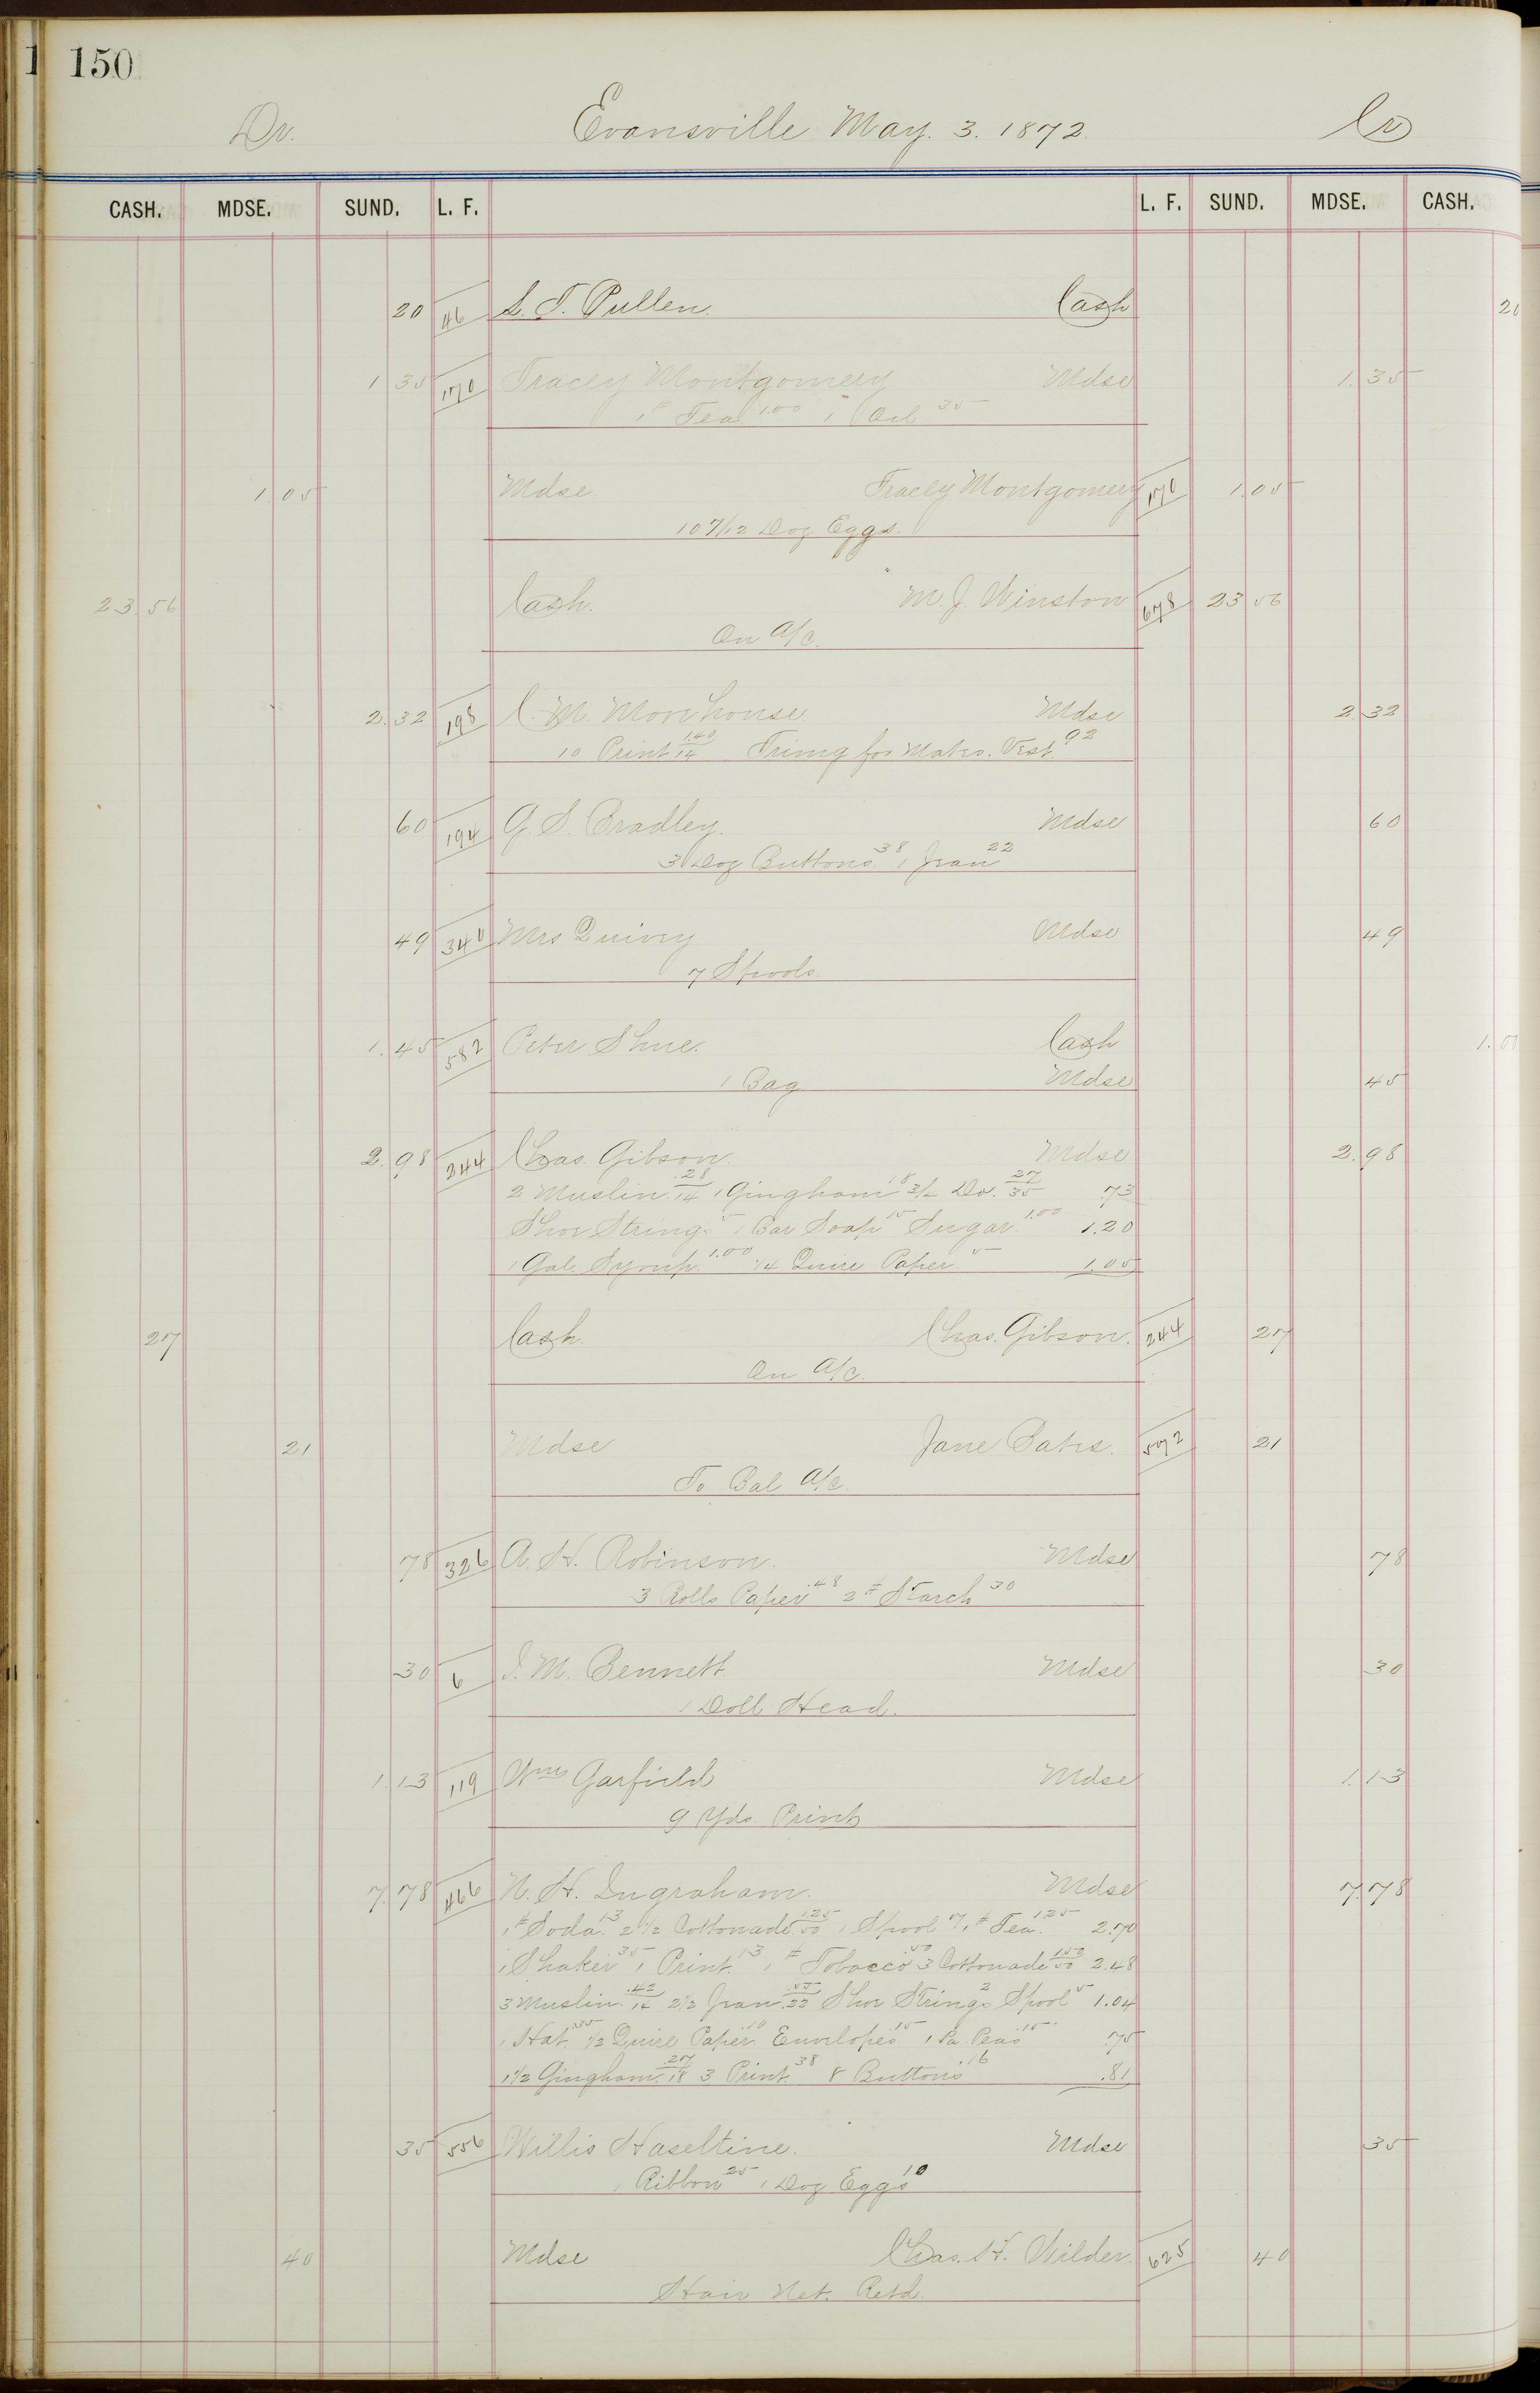 150
Dr. Evansville May. 3. 1872 Cr
CASH. MDSE. SUND. L. F. L. F. SUND. MDSE. CASH.
20 46 L. T. Pullen. Cash 20
1 35 170 Tracey Montgomery Mdse 1.35
1# Tea 1.00 1 Oil 35
1.05 Mdse Tracey Montgomery 170 1.05
10 7/12 Doz Eggs.
23.56 Cash. M. J. Winston 678 23 56
On A/c.
2.32 198 C. M. Morehouse Mdse 2.32
10 Print 1.40/14 Trimg for Vest. 92
60 194 G. S. Bradley. Mdse 60
3 Doz Buttons 38 1 Jean 22
49 340 Mrs Quivey Mdse 49
7 Spools.
1.45 582 Peter Shue. Cash 1.00
1 Bag Mdse 45
2.98 244 Chas. Gibson. Mdse 2.98
2 Muslin .28/14 1 Gingham 18 3/4 Do. 27/35 .73
Shoe Strings 5 1 Bar Soap 15 Sugar 1.00 1.20
1 Gal. Syrup. 1.00 1/4 Quire Paper 5 1.05
27 Cash. Chas. Gibson. 244 27
On A/c.
21 Mdse Jane Bates. 572 21
To Bal A/c.
78 326 A. H. Robinson. Mdse 78
3 Rolls Paper 48 2# Starch 30
30 6 I. M. Bennett. Mdse 30
1 Doll Head.
1.13 119 Wm Garfield Mdse 1.13
9 Yds. Print
7.78 466 N. H. Ingraham. Mdse 7.78
1# Soda. 13 2 1/2 Cottonade 1.25/50 1 Spool 7 1# Tea. 1.25 2.70
1 Shaker 35 1 Print. 13 1# Tobacco 50 3 Cottonade 1.50/50 2.48
3 Muslin. .42/14 2 1/2 Jean .55/22 Shoe Strings 2 Spool 5 1.04
1 Hat. 35 1/2 Quire Paper 10 Envelopes 15 1 Pa Peas 15 .75
1 1/2 Gingham .27/18 3 Print. 38 8 Buttons 16 .81
35 556 Willis Haseltine. Mdse 35
1 Ribbon 25 1 Doz Eggs 10
40 Mdse Chas. H. Wilder. 625 40
Hair Net. Retd.